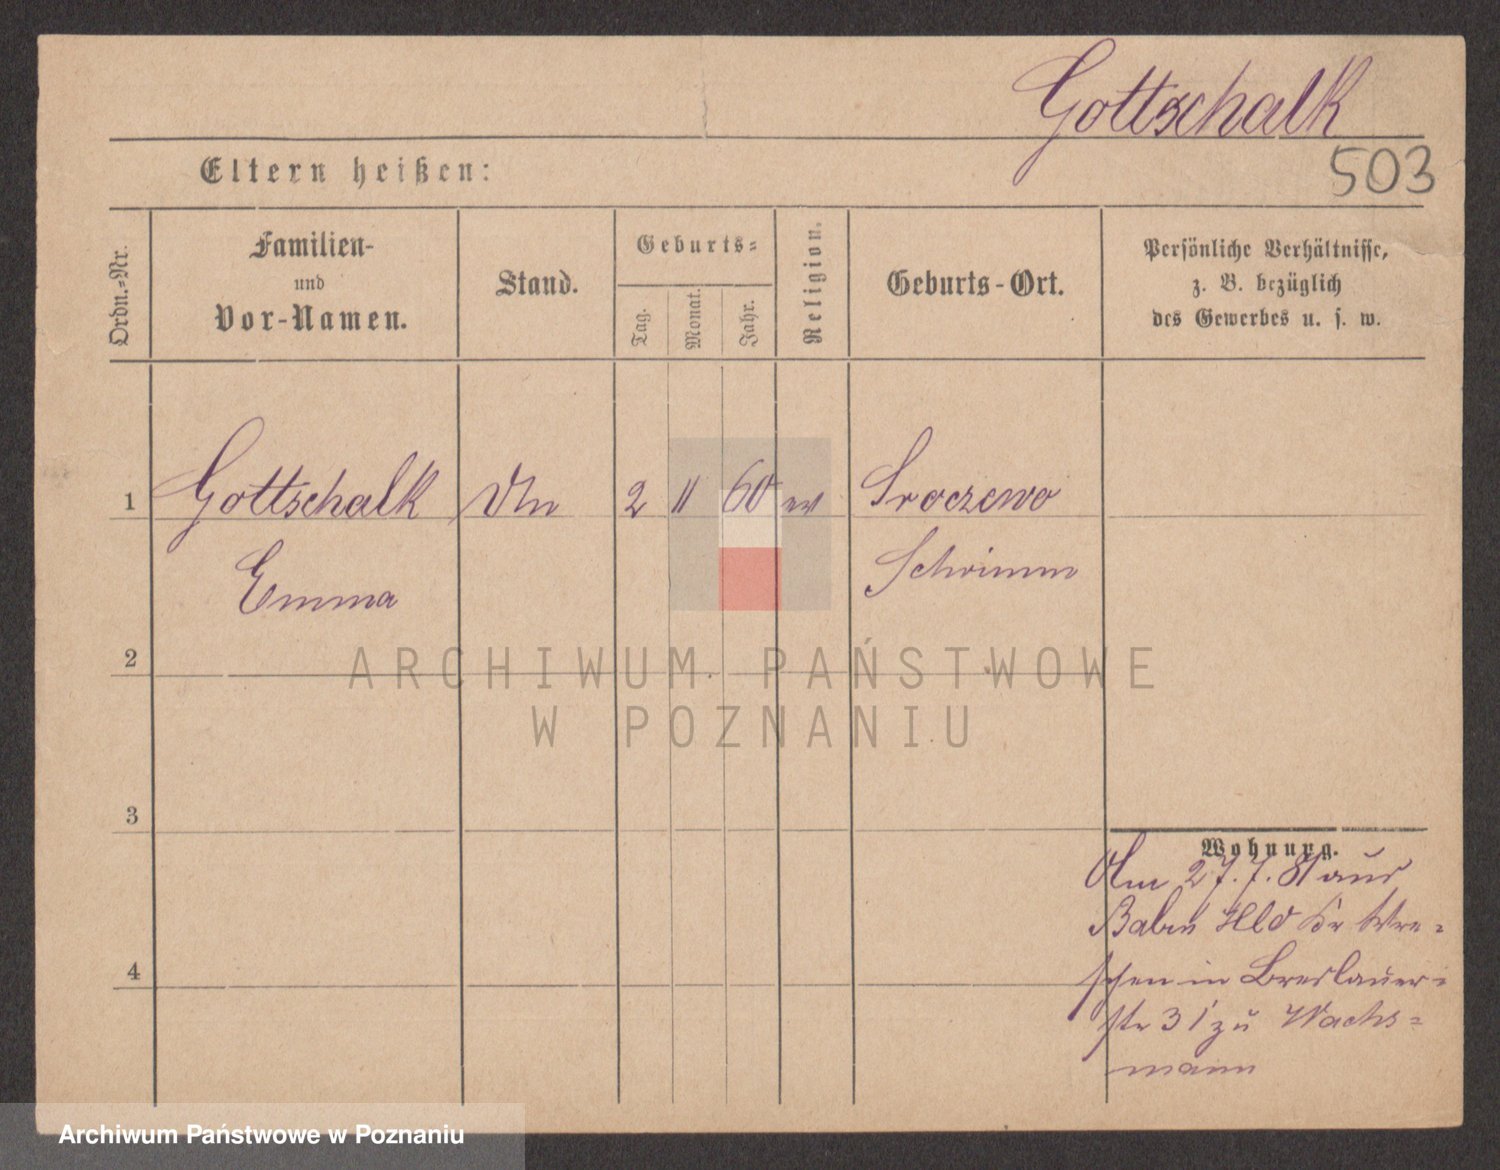 Gottschalk
503
Eltern heißen:
Ordn.-Nr.
Familien-
und
Vor-Namen.
Stand.
Geburts-
Tag.
Monat.
Jahr.
Religion.
Geburts-Ort.
Persönliche Verhältnisse,
z. B. bezüglich
des Gewerbes u. s. w.
1 Gottschalk 2 11 60 ev Sroczewo
Emma Schrimm
2
ARCHIWUM PAŃSTWOWE
W POZNANIU
3
Wohnung.
Am 27.7.81 aus
Babin Hld Kr Wre-
4
schen in Breslauer-
str 31 zu Wachs-
mann
Archiwum Państwowe w Poznaniu